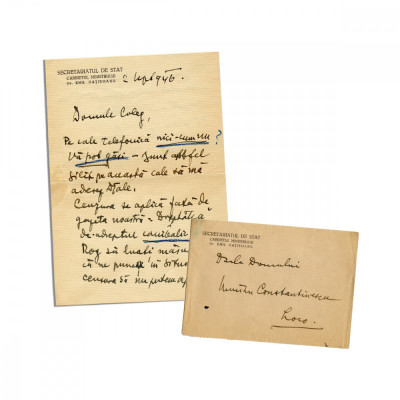 SECRETARIATUL DE STAT
CABINETUL MINISTRULUI
DR. EMIL HAȚIEGANU
2 Sept 946.
Domnule Coleg,
Pe cale telefonică nici-cum nu
Vă pot găsi – sunt astfel
silit pe această cale să mă
adresez Dtale.
Cenzura se aplică față de
gazeta noastră – Dreptatea
de-adreptul
Rog să luați măsu
că ne puneți în situ
cenzura să nu putem
SECRETARIATUL DE STAT
CABINETUL MINISTRULUI
DR. EMIL HAȚIEGANU
Dsale Domnului
Ministru Constantinescu
Loco.